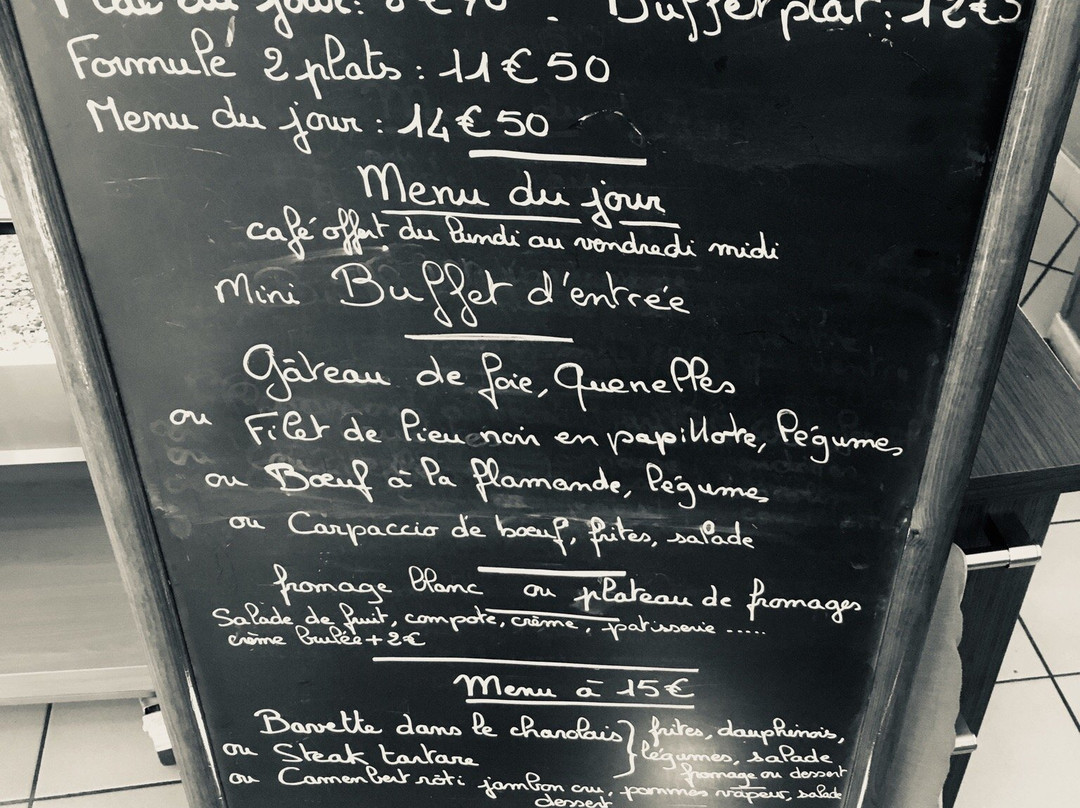 Plat du jour: 8€90 . Buffet plat: 12€5
Formule 2 plats : 11€50
Menu du jour : 14€50
Menu du jour
café offert du lundi au vendredi midi
Mini Buffet d'entrée
Gâteau de foie, Quenelles
ou Filet de lieu noir en papillote, légumes
ou Bœuf à la flamande, légumes
ou Carpaccio de bœuf, frites, salade
fromage blanc ou plateau de fromages
Salade de fruit, compote, crème, patisserie .....
crème brulée + 2€
Menu à 15€
Bavette dans le charolais } frites, dauphinois,
ou Steak tartare légumes, salade
fromage ou dessert
ou Camembert rôti jambon cru, pommes vapeur, salade
dessert